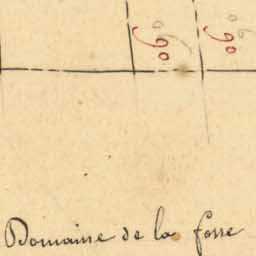 90 90
Domaine de la fosse